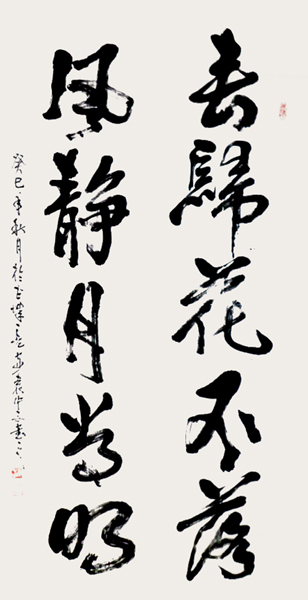 春歸花不落
風靜月常明
癸巳年秋月於